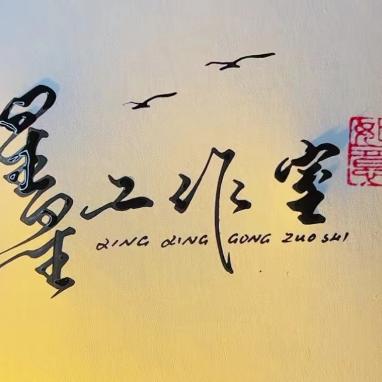 星星工作室
XING XING GONG ZUO SHI
如意